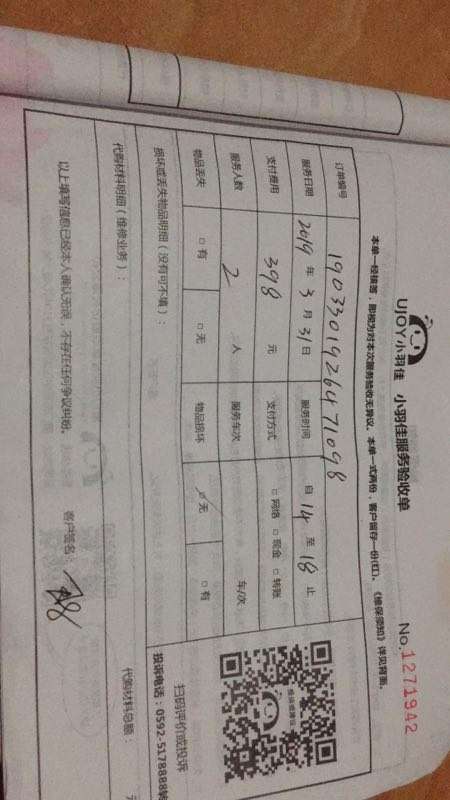 UJOY小羽佳 小羽佳服务验收单 No.1271942
本单一经核签，即视为对本次服务验收无异议。本单一式两份，客户留存一份(红)。《维保须知》详见背面。
订单编号 1903301926471098
服务日期 2019 年 3 月 31 日 服务时间 自 14 至 18 止
支付费用 398 元 支付方式 □ 网络 □ 现金 □ 转账
服务人数 2 人 服务车次 车/次
物品丢失 □ 有 □ 无 物品损坏 □ 无 □ 有
损坏或丢失物品明细（没有可不填）：
扫码评价或投诉
投诉电话：0592-5178888转
代购材料明细（维修业务）：
代购材料总额： 元
以上填写信息已经本人确认无误，不存在任何争议纠纷。 客户签名：